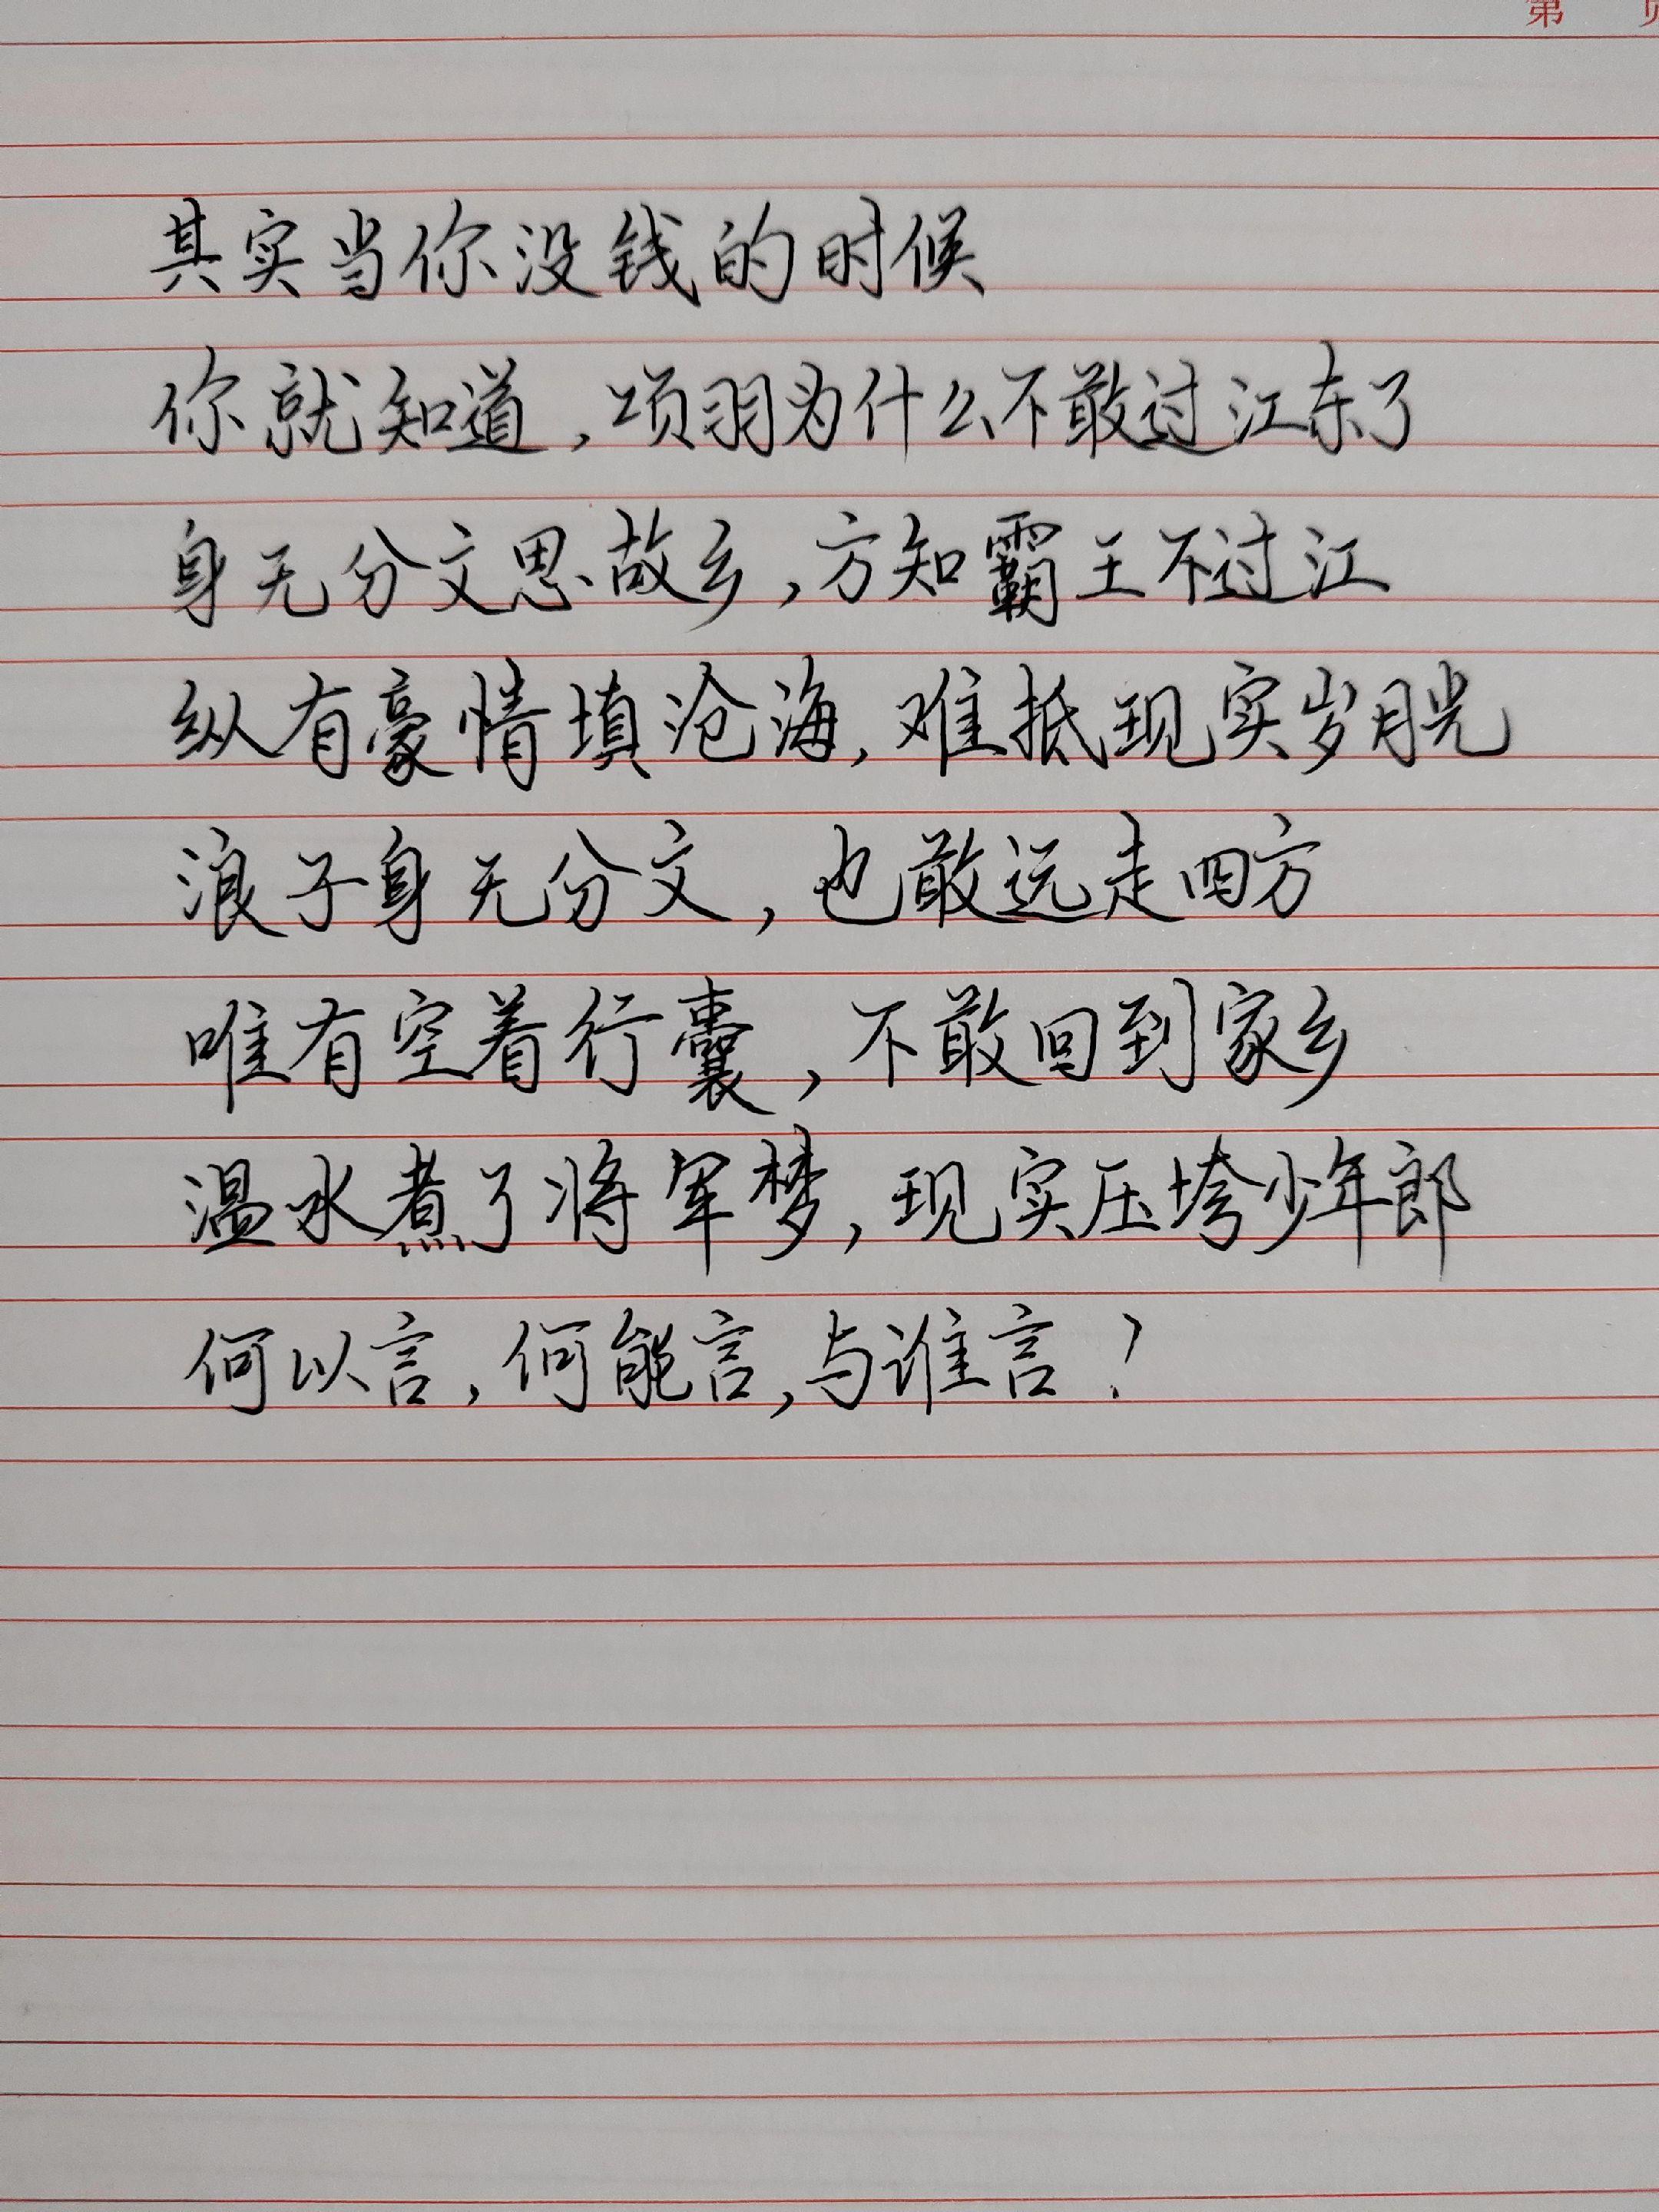 第 页
其实当你没钱的时候
你就知道，项羽为什么不敢过江东了
身无分文思故乡，方知霸王不过江
纵有豪情填沧海，难抵现实岁月光
浪子身无分文，也敢远走四方
唯有空着行囊，不敢回到家乡
温水煮了将军梦，现实压垮少年郎
何以言，何能言，与谁言？